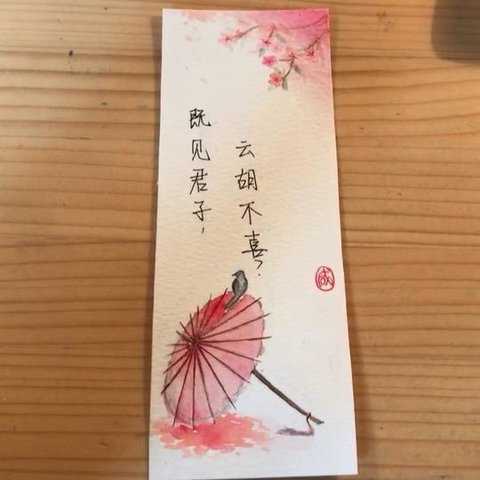 既见君子，
云胡不喜？